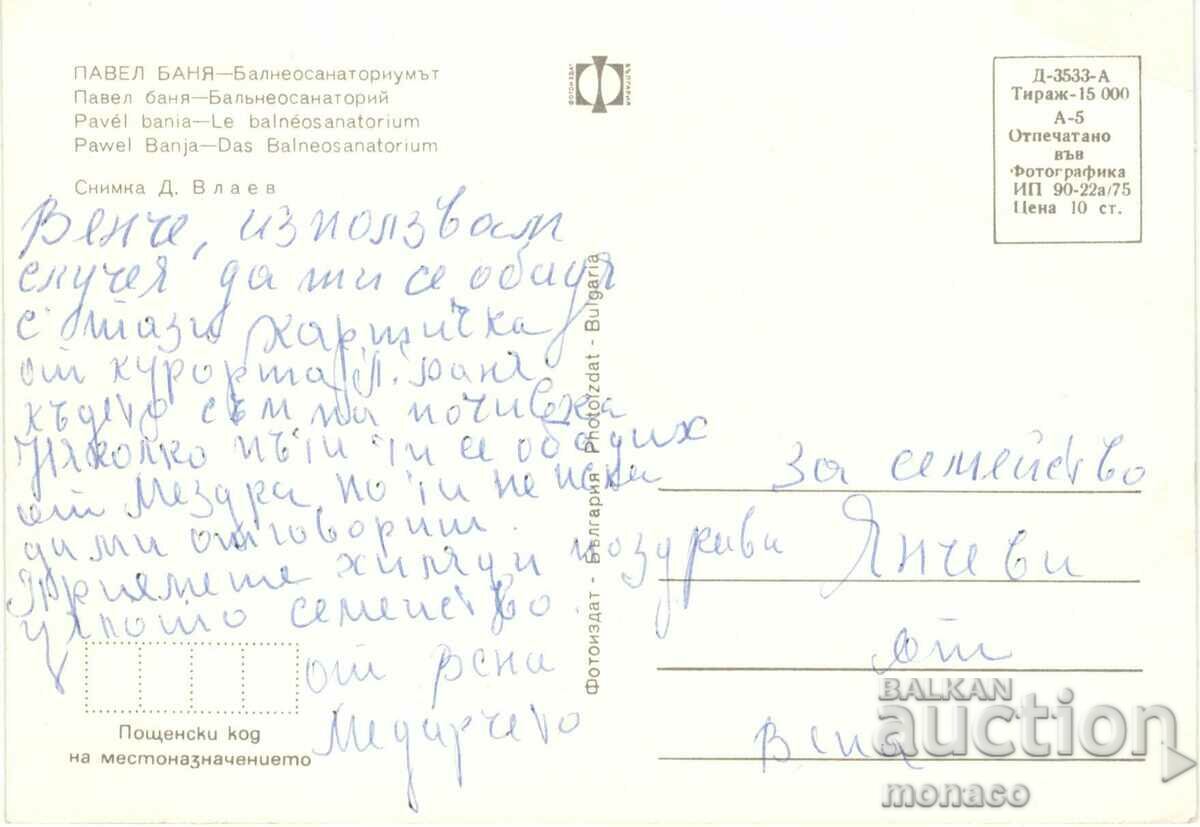 ПАВЕЛ БАНЯ—Балнеосанаториумът
Павел баня—Бальнеосанаторий
Pavél bania—Le balnéosanatorium
Pawel Banja—Das Balneosanatorium
Снимка Д. Влаев
ФОТОИЗДАТ
БЪЛГАРИЯ
Д-3533-А
Тираж-15 000
А-5
Отпечатано
във
Фотографика
ИП 90-22а/75
Цена 10 ст.
Венче, използвам
случея да ти се обадя
с тази картичка
от курорта П. баня
където съм на почивка
Няколко пъти ти се обадих
от Мездра но ти не иска
да ми отговориш.
Приемете хиляди поздрави
цялото семейство.
от Вена
Фотоиздат - България Photoizdat - Bulgaria
за семейство
Янчеви
от
Вена
Пощенски код
на местоназначението
BALKAN
auction
monaco